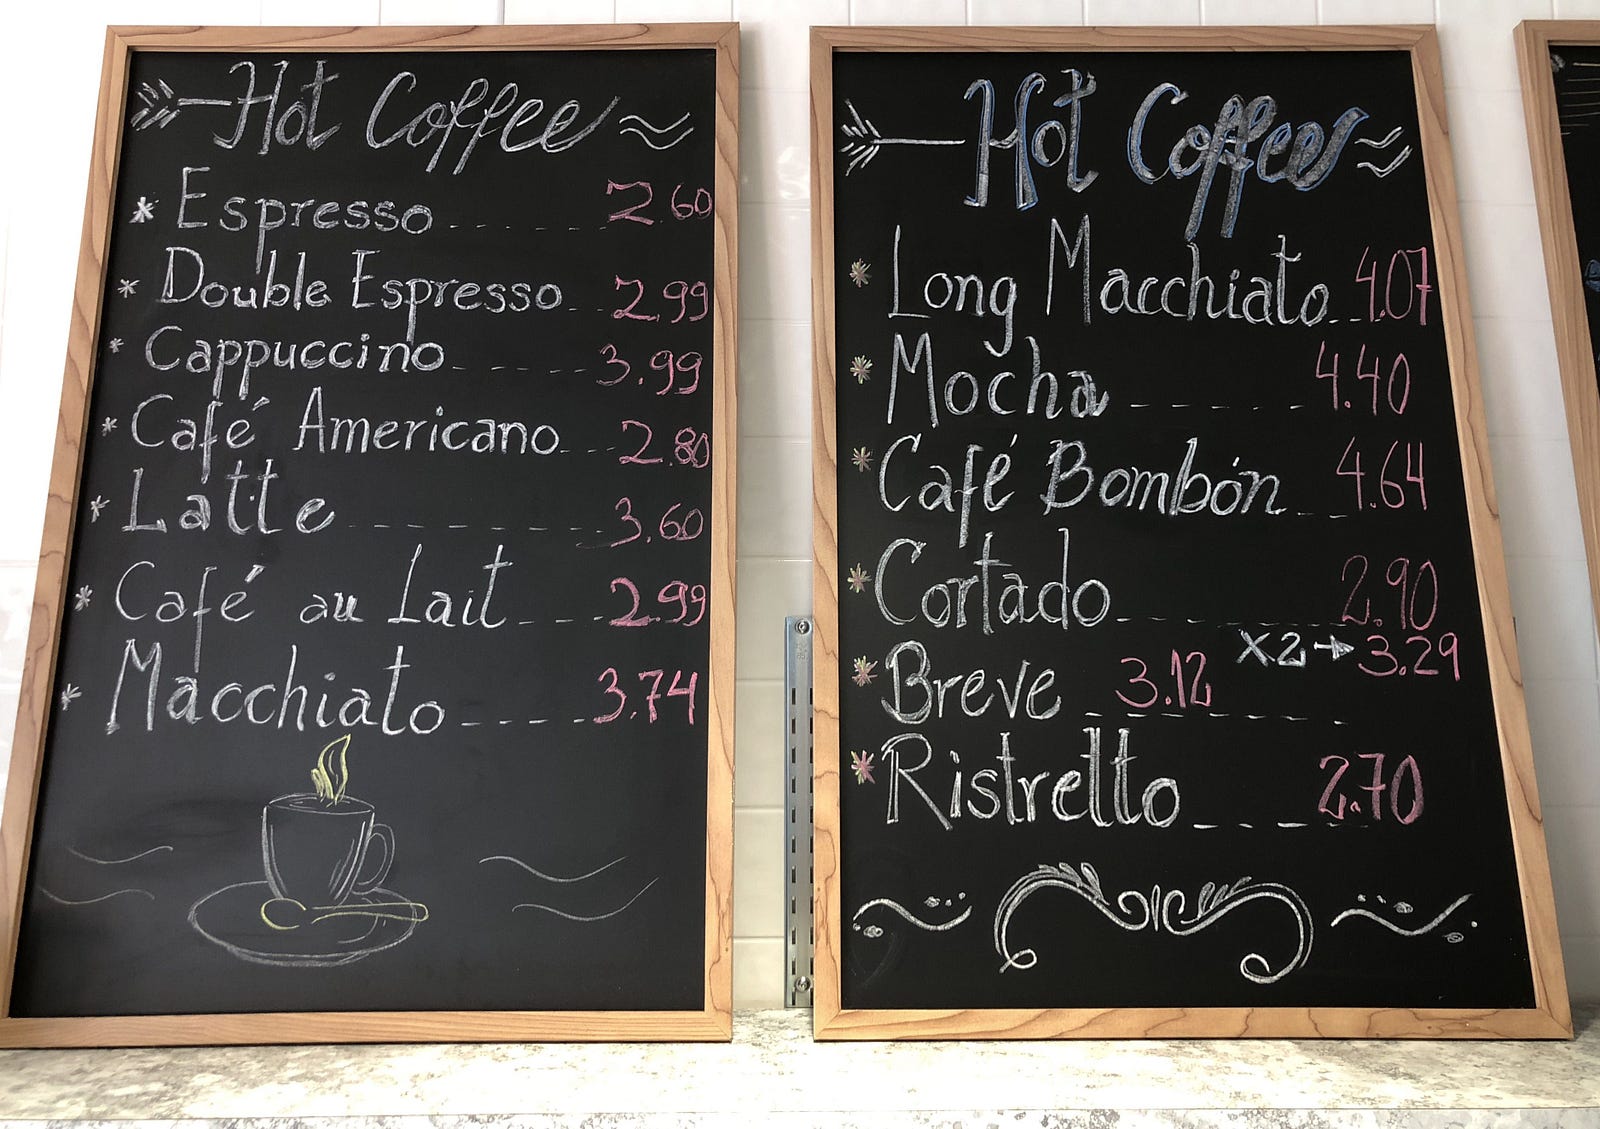 Hot Coffee
* Espresso 2.60
* Double Espresso 2.99
* Cappuccino 3.99
* Café Americano 2.80
* Latte 3.60
* Café au Lait 2.99
* Macchiato 3.74
Hot Coffee
* Long Macchiato 4.07
* Mocha 4.40
* Café Bombón 4.64
* Cortado 2.90
X2 → 3.29
* Breve 3.12
* Ristretto 2.70